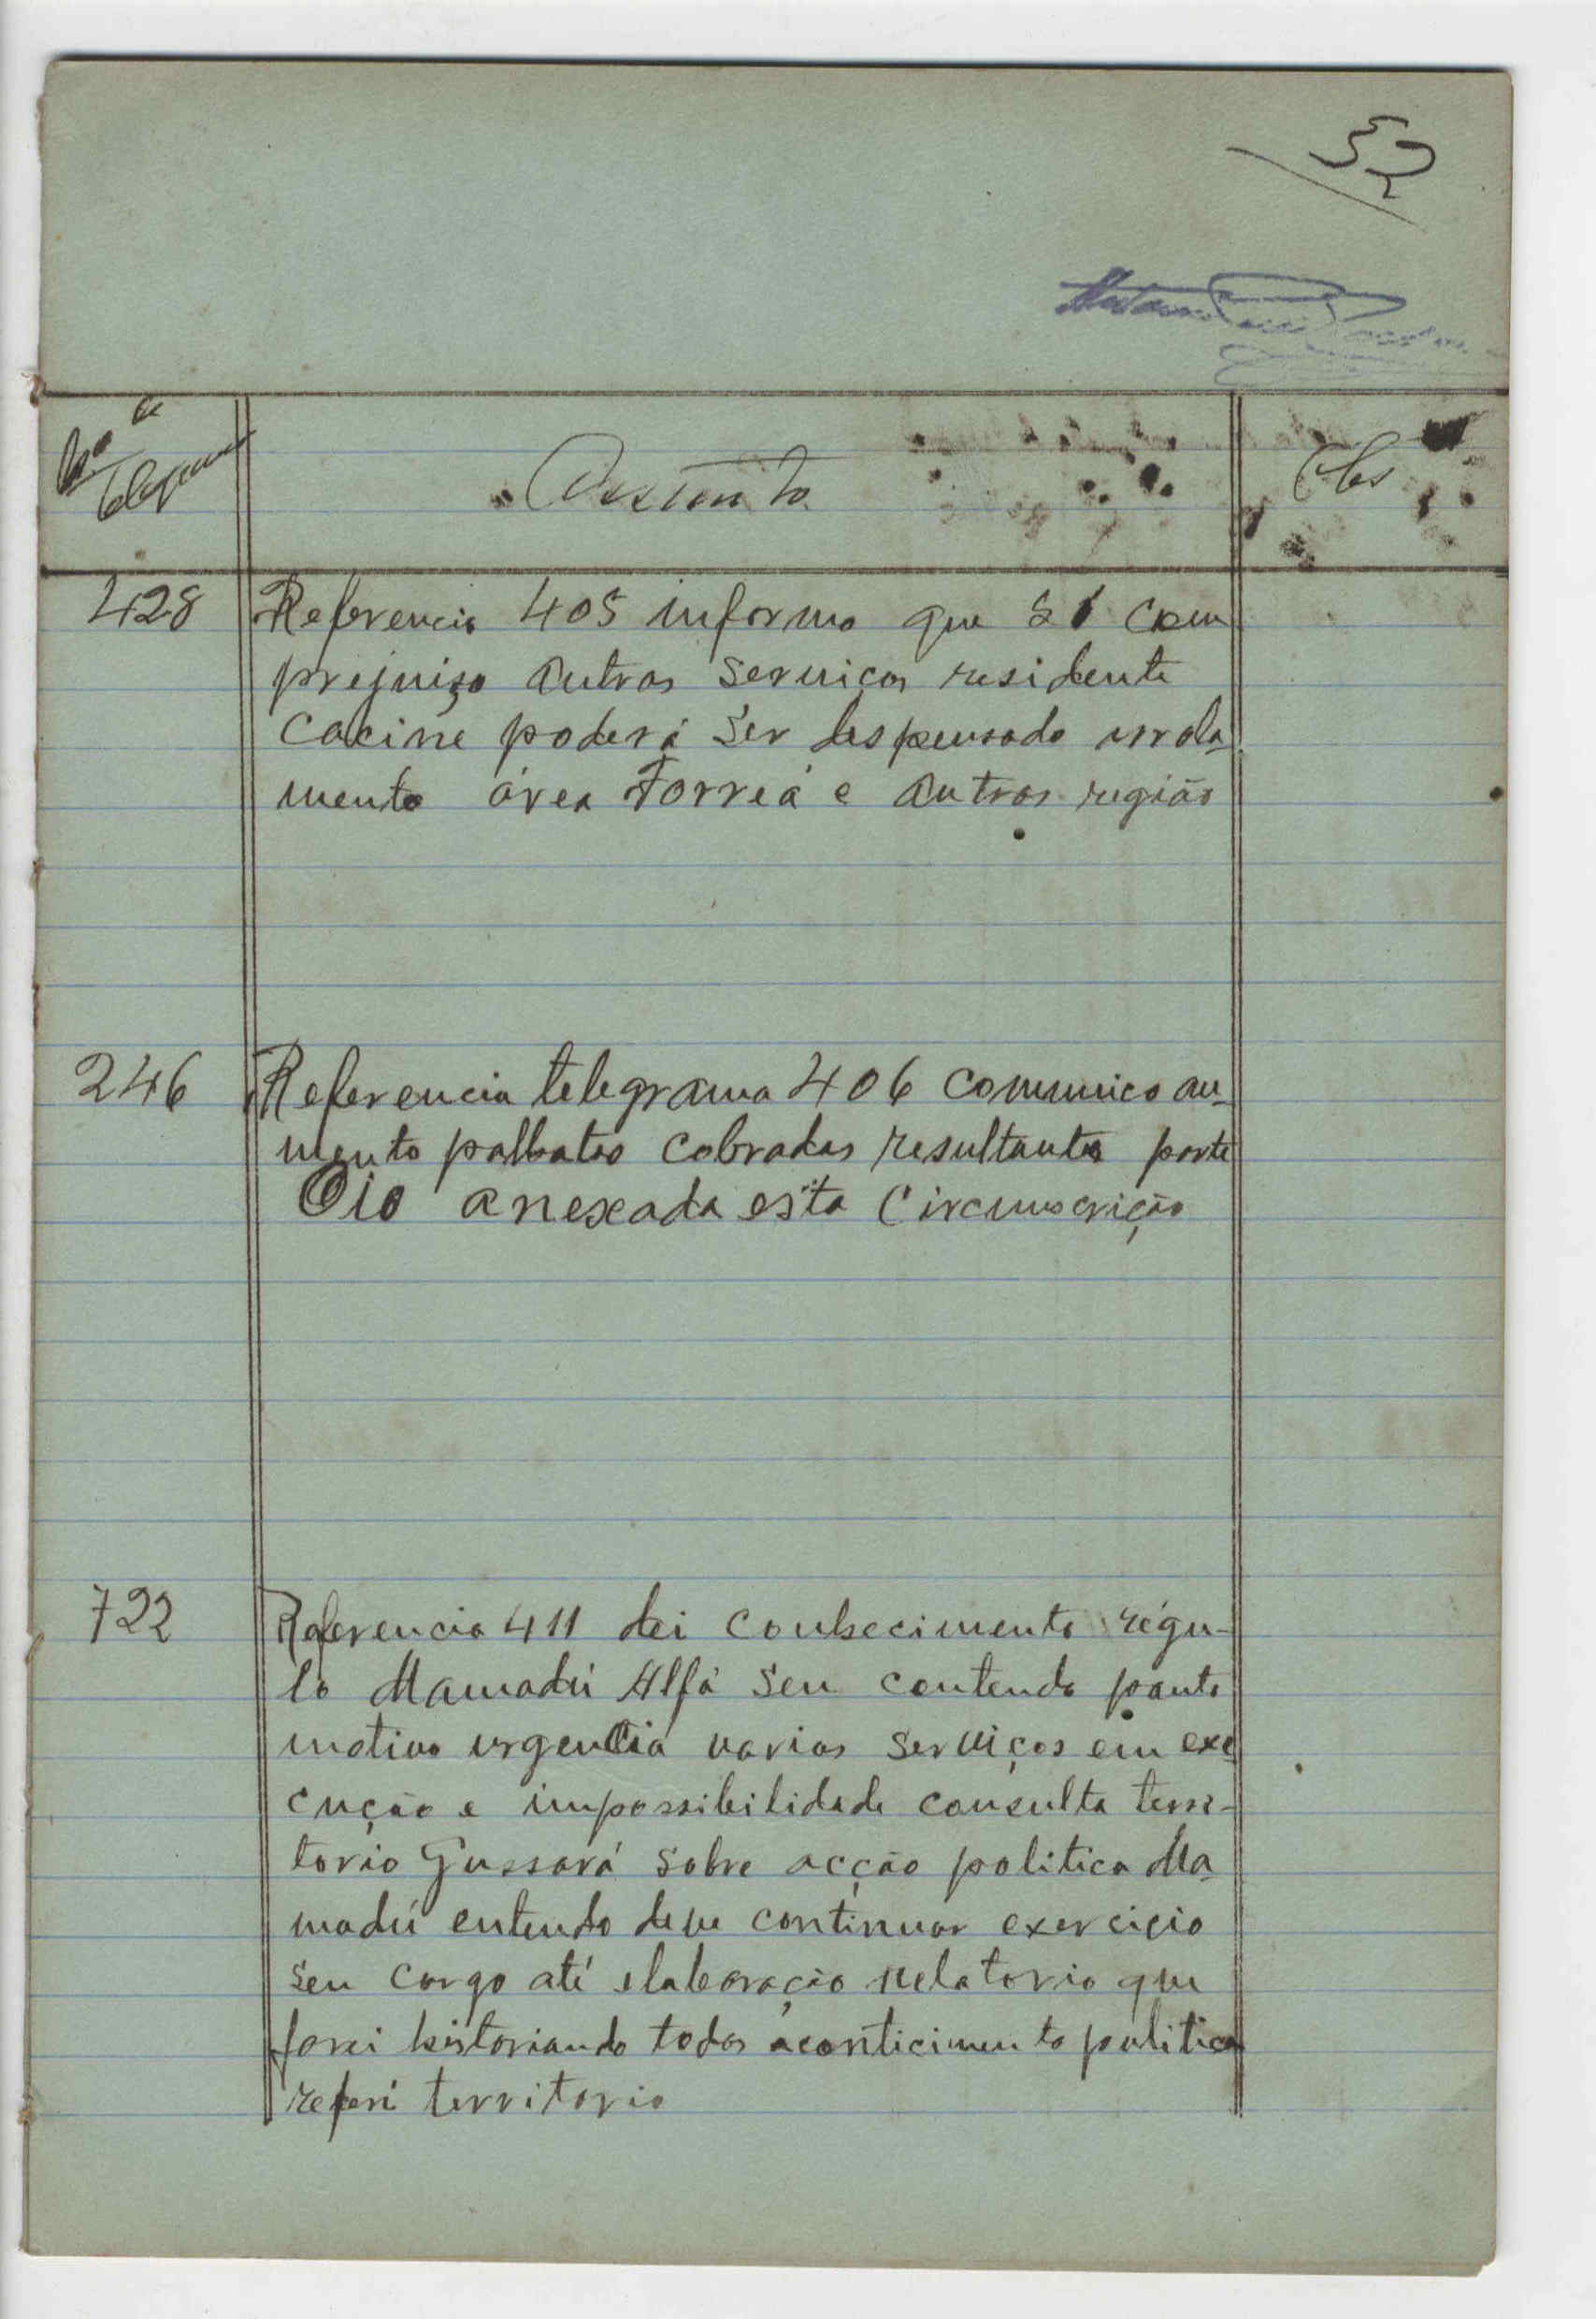 52
Nº de
Telegrama
Assunto
Obs
428
Referencia 405 informo que só com
prejuiso outros serviços residente
Cacine poderá ser despensado arrola
mento área Forreá e outros região
246
Referencia telegrama 406 comunico au-
mento palhotas cobradas resultante parte
Oio anexada esta Circunscrição
722
Referencia 411 dei conhecimento régu-
lo Mamadú Alfá seu contendo ponto
motivo urgencia varios serviços em exe
cução e impossibilidade consulta terri-
torio Gussará sobre acção politica Ma
madú entendo deve continuar exercicio
seu cargo até elaboração relatorio que
farei historiando todos aconticimento politica
referi territorio